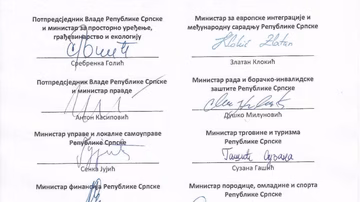 Потпредсједник Владе Републике Српске
и министар за просторно уређење,
грађевинарство и екологију
Сребренка Голић
Министар за европске интеграције и
међународну сарадњу Републике Српске
Zlatan
Златан Клокић
Потпредсједник Владе Републике Српске
и министар правде
Антон Касиповић
Министар рада и борачко-инвалидске
заштите Републике Српске
Душко Милуновић
Министар управе и локалне самоуправе
Републике Српске
Сенка Јујић
Министар трговине и туризма
Републике Српске
Гашић Сузана
Сузана Гашић
Министар финансија Републике Српске
Министар породице, омладине и спорта
Републике Српске